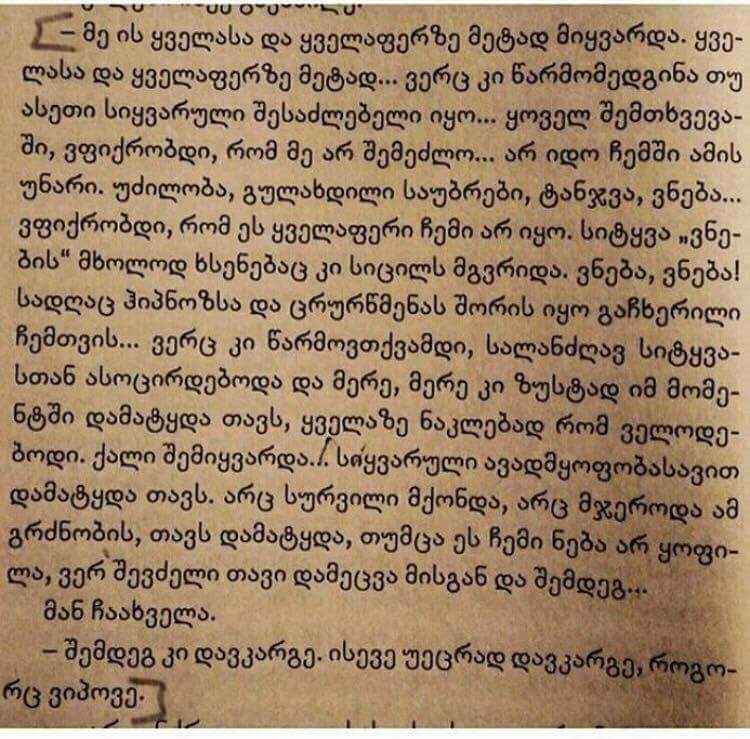 – მე ის ყველასა და ყველაფერზე მეტად მიყვარდა. ყვე-
ლასა და ყველაფერზე მეტად... ვერც კი წარმომედგინა თუ
ასეთი სიყვარული შესაძლებელი იყო... ყოველ შემთხვევა-
ში, ვფიქრობდი, რომ მე არ შემეძლო... არ იდო ჩემში ამის
უნარი. უძილობა, გულახდილი საუბრები, ტანჯვა, ვნება...
ვფიქრობდი, რომ ეს ყველაფერი ჩემი არ იყო. სიტყვა „ვნე-
ბის“ მხოლოდ ხსენებაც კი სიცილს მგვრიდა. ვნება, ვნება!
სადღაც ჰიპნოზსა და ცრურწმენას შორის იყო გაჩხერილი
ჩემთვის... ვერც კი წარმოვთქვამდი, სალანძღავ სიტყვა-
სთან ასოცირდებოდა და მერე, მერე კი ზუსტად იმ მომე-
ნტში დამატყდა თავს, ყველაზე ნაკლებად რომ ველოდე-
ბოდი. ქალი შემიყვარდა... სიყვარული ავადმყოფობასავით
დამატყდა თავს. არც სურვილი მქონდა, არც მჯეროდა ამ
გრძნობის, თავს დამატყდა, თუმცა ეს ჩემი ნება არ ყოფი-
ლა, ვერ შევძელი თავი დამეცვა მისგან და შემდეგ...
მან ჩაახველა.
– შემდეგ კი დავკარგე. ისევე უეცრად დავკარგე, როგო-
რც ვიპოვე.